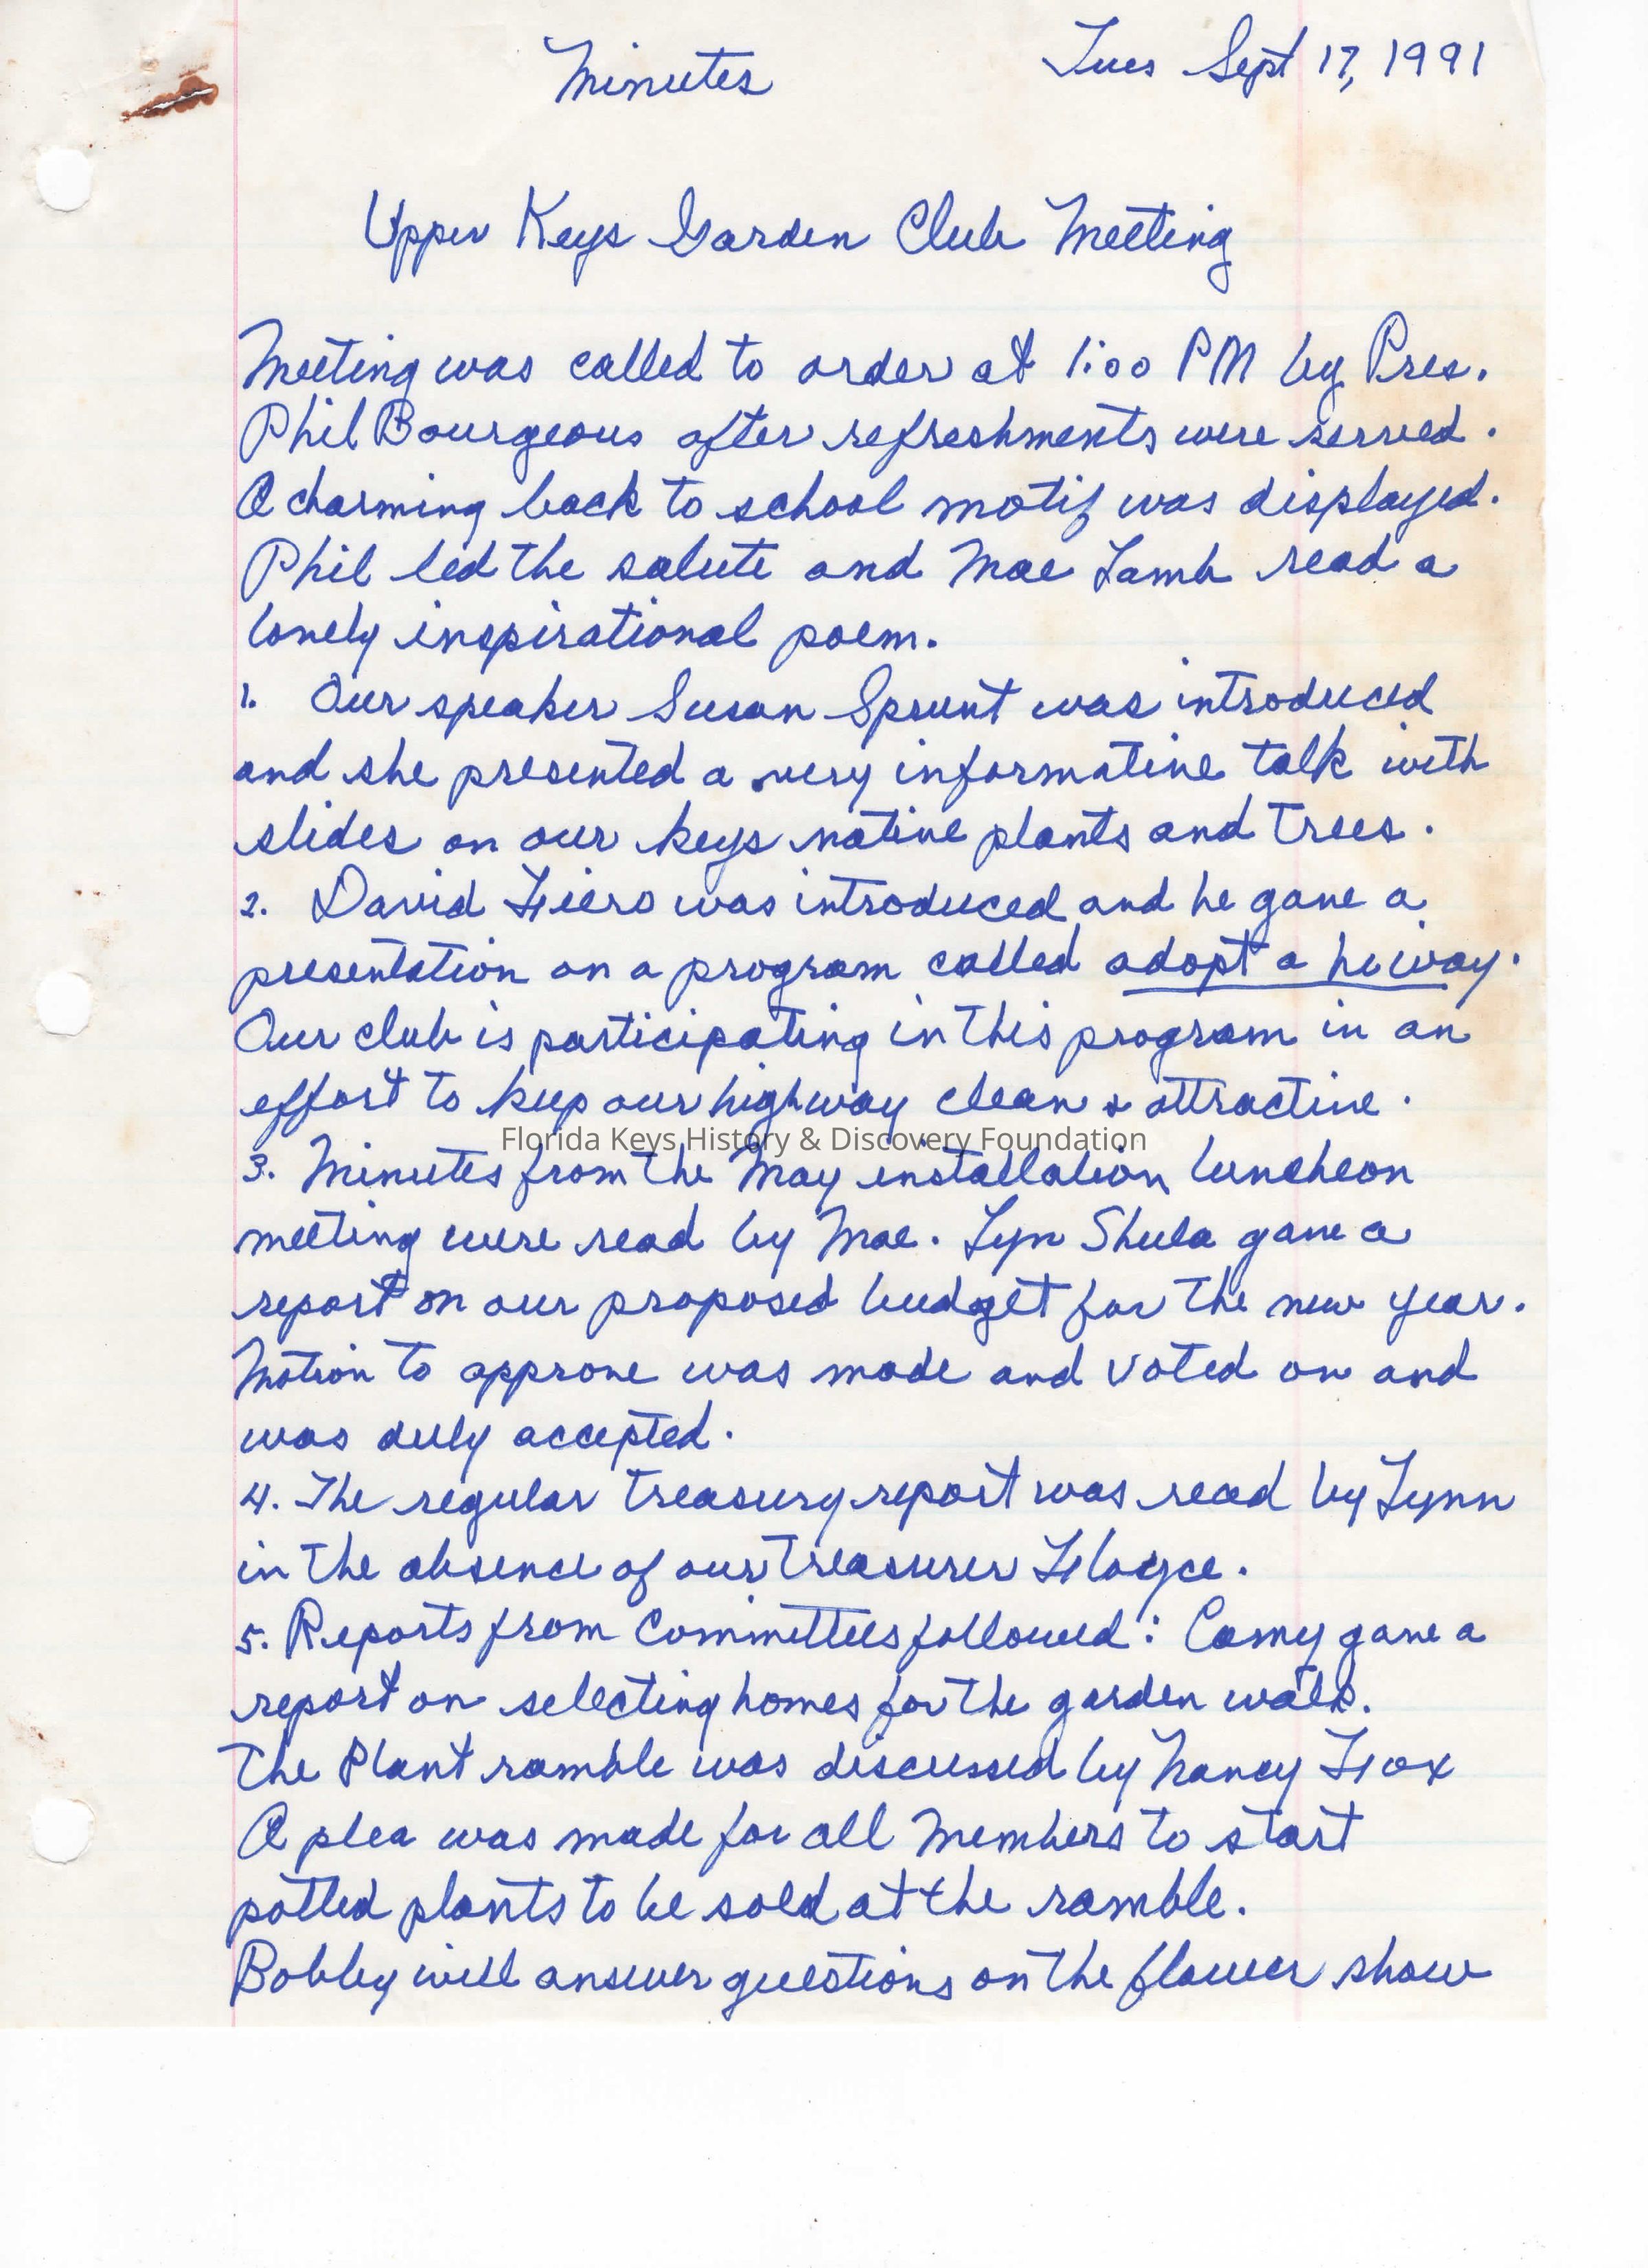 Minutes
Tues Sept 17, 1991
Upper Keys Garden Club Meeting
Meeting was called to order at 1:00 PM by Pres.
Phil Bourgeous after refreshments were served.
A charming back to school motif was displayed.
Phil led the salute and Mae Lamb read a
lovely inspirational poem.
1. Our speaker Susan Sprunt was introduced
and she presented a very informative talk with
slides on our keys native plants and trees.
2. David Fiero was introduced and he gave a
presentation on a program called adopt a hiway.
Our club is participating in this program in an
effort to keep our highway clean & attractive.
Florida Keys History & Discovery Foundation
3. Minutes from the May installation luncheon
meeting were read by Mae. Lyn Shula gave a
report on our proposed budget for the new year.
Motion to approve was made and voted on and
was duly accepted.
4. The regular treasury report was read by Lynn
in the absence of our treasurer Floyce.
5. Reports from Committees followed: Camy gave a
report on selecting homes for the garden walk.
The Plant ramble was discussed by Nancy Fox
A plea was made for all members to start
potted plants to be sold at the ramble.
Bobby will answer questions on the flower show